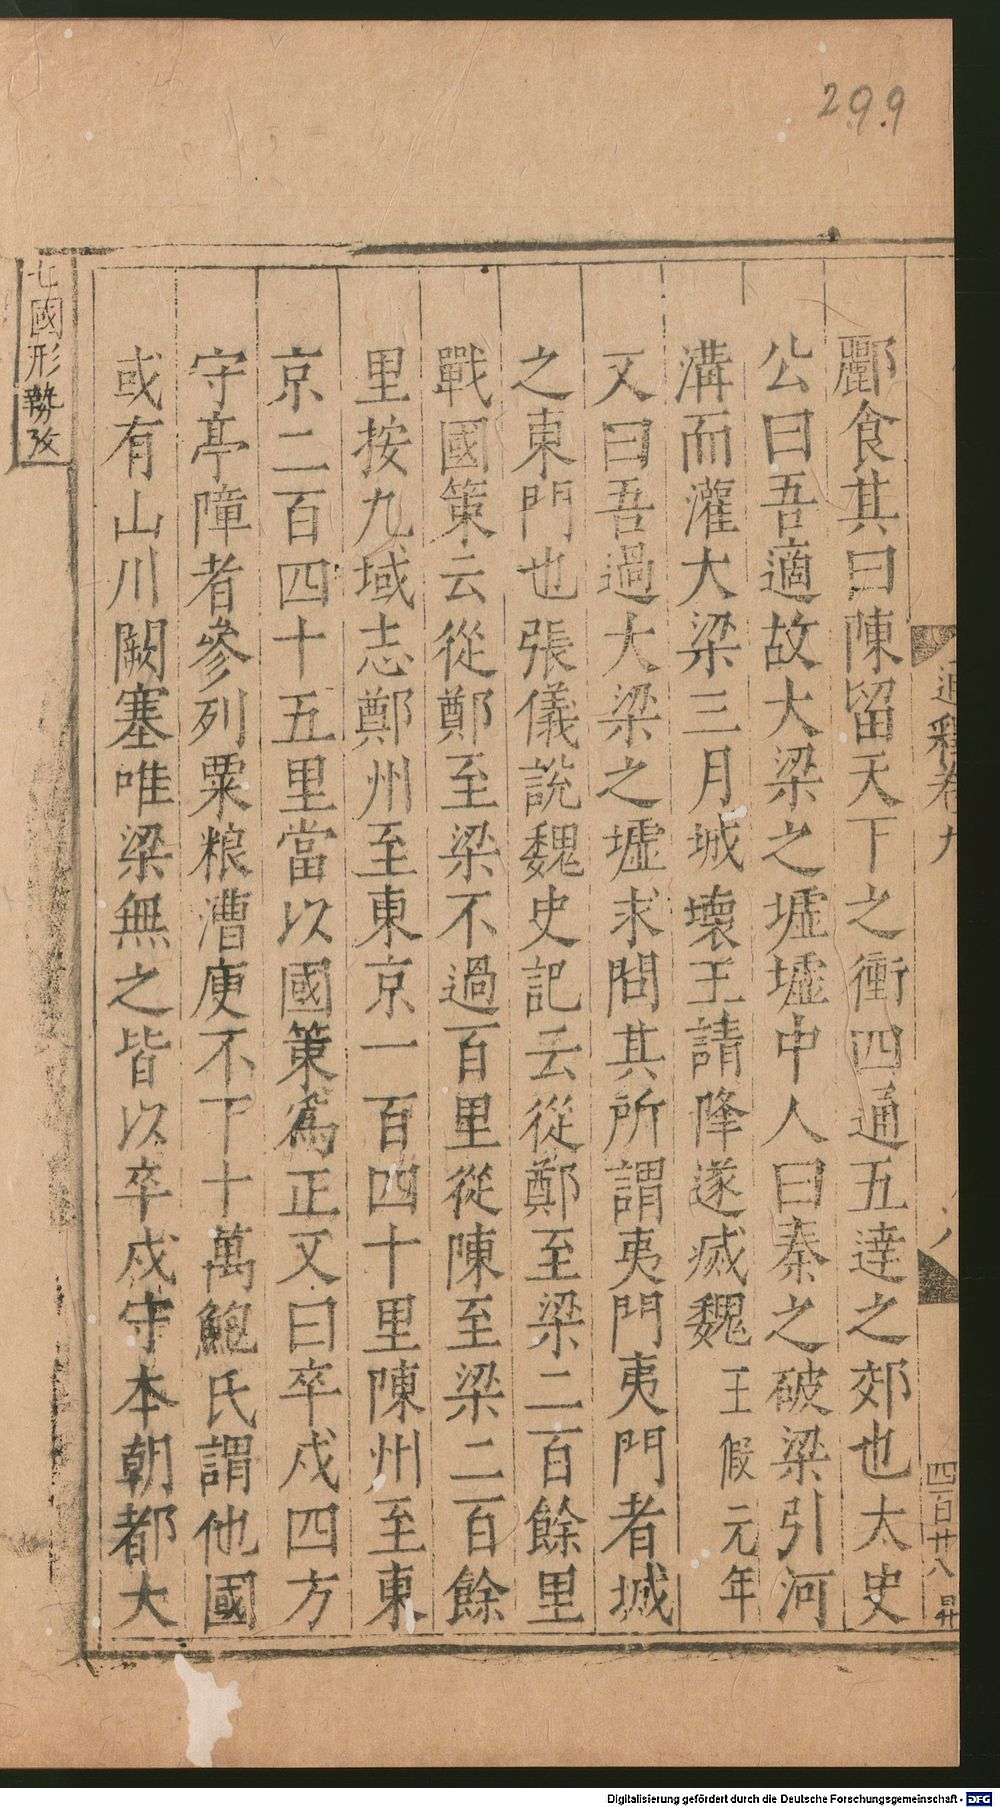 299
通釋卷九
四百廿八
酈食其曰陳留天下之衝四通五達之郊也太史
公曰吾適故大梁之墟墟中人曰秦之破梁引河
溝而灌大梁三月城壞王請降遂滅魏王假元年
又曰吾過大梁之墟求問其所謂夷門夷門者城
之東門也張儀說魏史記云從鄭至梁二百餘里
戰國策云從鄭至梁不過百里從陳至梁二百餘
里按九域志鄭州至東京一百四十里陳州至東
京二百四十五里當以國策爲正又曰卒戍四方
守亭障者參列粟粮漕庾不下十萬鮑氏謂他國
或有山川闕塞唯梁無之皆以卒戍守本朝都大
七國形勢攷
Digitalisierung gefördert durch die Deutsche Forschungsgemeinschaft - DFG